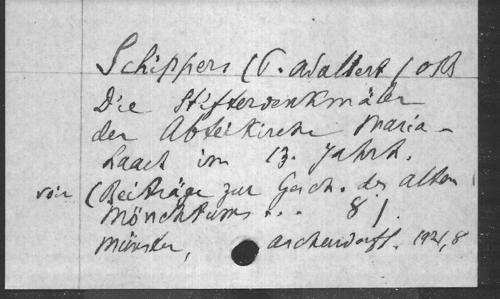 Schippers (P. Adalbert) OSB
Die Stifterdenkmäler
der Abteikirche Maria-
Laach im 13. Jahrh.
voir (Beiträge zur Gesch. des alten
Mönchtums ... 8).
Münster, Aschendorff. 1921, 8